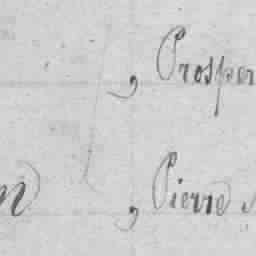 , Prosper
n , Pierre